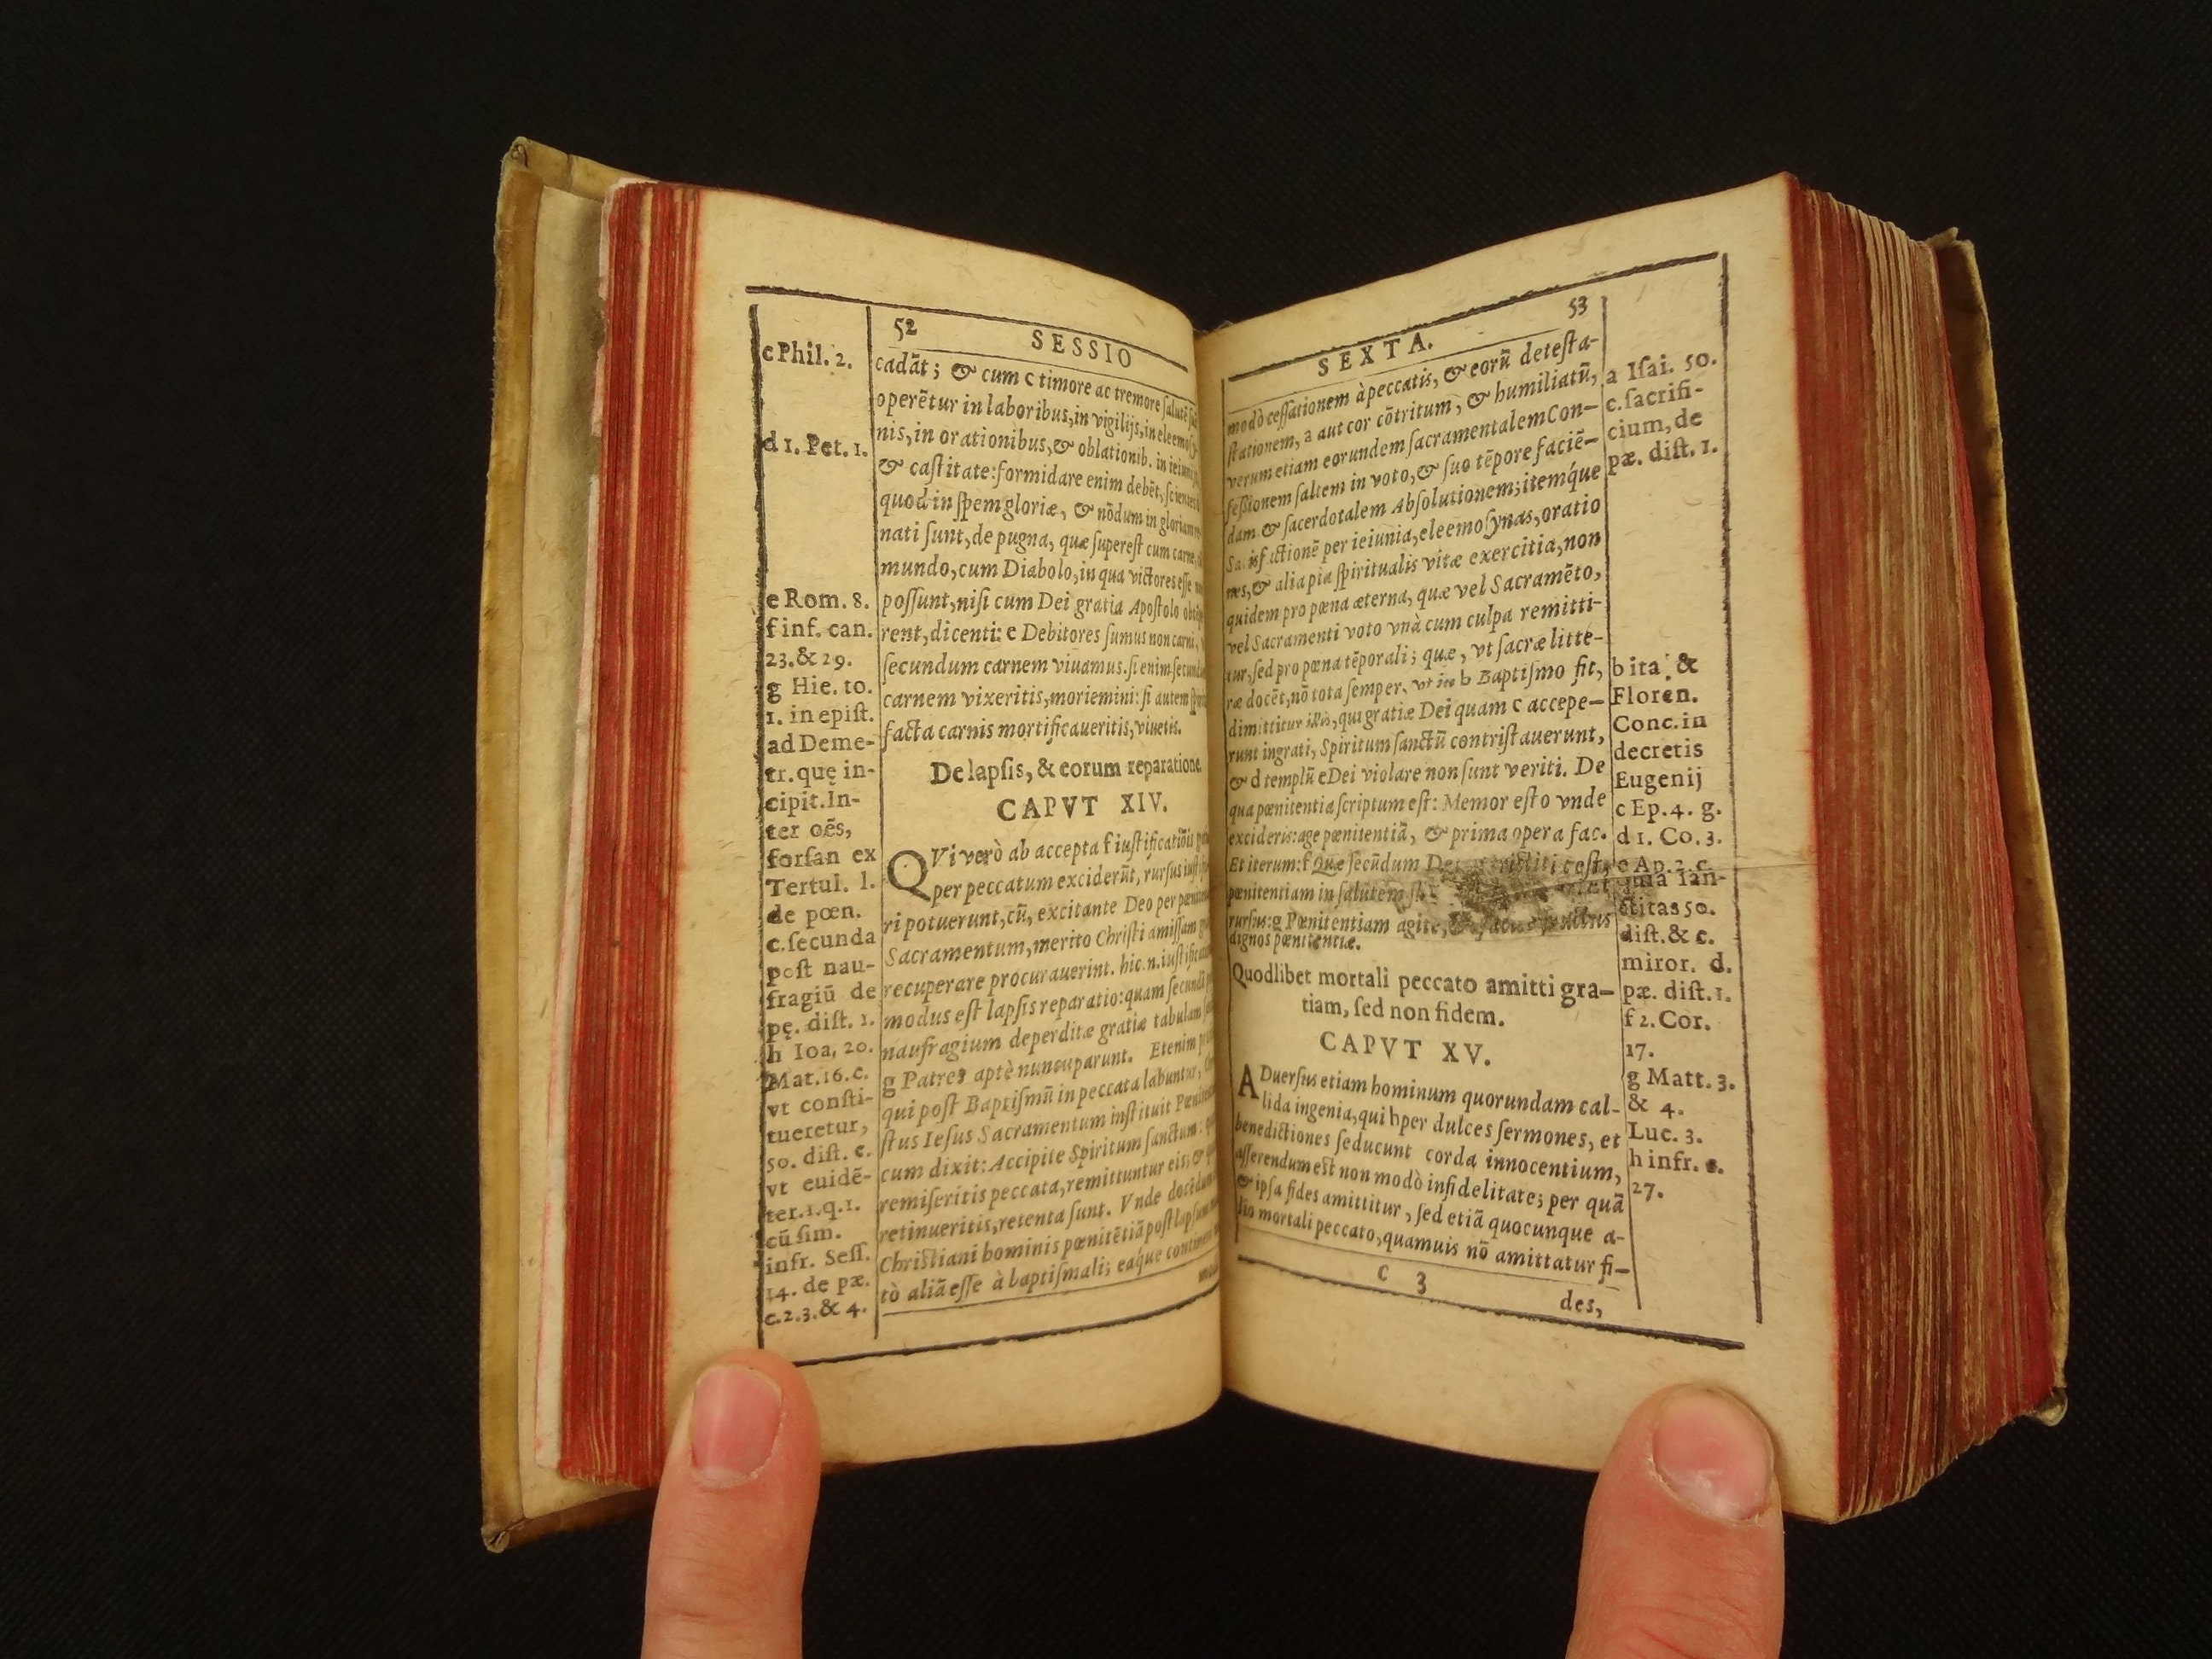 52 SESSIO
c Phil. 2.
d 1. Pet. 1.
e Rom. 8.
f inf. can.
23. & 29.
g Hie. to.
1. in epist.
ad Deme-
tr. quę in-
cipit. In-
ter oẽs,
forsan ex
Tertul. l.
de pœn.
c. secunda
post nau-
fragiũ de
pę. dist. 1.
h Ioa, 20.
Mat. 16. c.
vt consti-
tueretur,
50. dist. c.
vt euidẽ-
ter. 1. q. 1.
cũ sim.
infr. Sess.
14. de pæ.
c. 2. 3. & 4.
cadãt; & cum c timore ac tremore salutẽ
operẽtur in laboribus, in vigilijs, in eleemosy
nis, in orationibus, & oblationib. in ieiunijs
& castitate: formidare enim debẽt, scientes
quod in spem gloriæ, & nõdum in gloriam
nati sunt, de pugna, quæ superest cum carne,
mundo, cum Diabolo, in qua victores esse
possunt, nisi cum Dei gratia Apostolo
rent, dicenti: e Debitores sumus non carni,
secundum carnem viuamus. si enim secundum
carnem vixeritis, moriemini: si autem
facta carnis mortificaueritis, viuetis.
De lapsis, & eorum reparatione.
CAPVT XIV.
QVi verò ab accepta f iustificatiõis
per peccatum exciderũt, rursus
ri potuerunt, cũ, excitante Deo per
Sacramentum, merito Christi amissam
recuperare procurauerint. hic. n. iustificat
modus est lapsis reparatio: quam secundã
naufragium deperditæ gratiæ tabulam
g Patres aptè nuncuparunt. Etenim
qui post Baptismũ in peccata labuntur,
stus Iesus Sacramentum instituit
cum dixit: Accipite Spiritum sanctum:
remiseritis peccata, remittuntur eis; &
retinueritis, retenta sunt. Vnde docẽdum
Christiani hominis pœnitẽtiã post lapsum
tò aliã esse à baptismali; eaq́ue
SEXTA. 53
modò cessationem à peccatis, & eorũ detesta-
stationem, a aut cor cõtritum, & humiliatũ,
verum etiam eorundem sacramentalem Con-
fessionem saltem in voto, & suo tẽpore faciẽ-
dam & sacerdotalem Absolutionem; itemq́ue
Satisfactionẽ per ieiunia, eleemosynas, oratio
nes, & alia pia spiritualis vitæ exercitia, non
quidem pro pœna æterna, quæ vel Sacramẽto,
vel Sacramenti voto vnà cum culpa remitti-
tur, sed pro pœna tẽporali; quæ, vt sacræ litte-
ræ docẽt, nõ tota semper, vt in b Baptismo fit,
dimittitur illis, qui gratiæ Dei quam c accepe-
runt ingrati, Spiritum sanctũ contristauerunt,
& d templũ e Dei violare non sunt veriti. De
qua pœnitentia scriptum est: Memor esto vnde
excideris: age pœnitentiã, & prima opera fac.
Et iterum: f Quæ secũdum
pœnitentiam in salutem
rursus: g Pœnitentiam agite,
dignos pœnitentiæ.
Quodlibet mortali peccato amitti gra-
tiam, sed non fidem.
CAPVT XV.
ADuersus etiam hominum quorundam cal-
lida ingenia, qui h per dulces sermones, et
benedictiones seducunt corda innocentium,
asserendum est non modò infidelitate; per quã
& ipsa fides amittitur, sed etiã quocunque a-
lio mortali peccato, quamuis nõ amittatur fi-
c 3
des,
a Isai. 50.
c. sacrifi-
cium, de
pæ. dist. 1.
b ita. &
Floren.
Conc. in
decretis
Eugenij
c Ep. 4. g.
d 1. Co. 3.
e Ap. 2. c.
quia san-
ctitas 50.
dist. & c.
miror. d.
pæ. dist. 1.
f 2. Cor.
17.
g Matt. 3.
& 4.
Luc. 3.
h infr. c.
27.